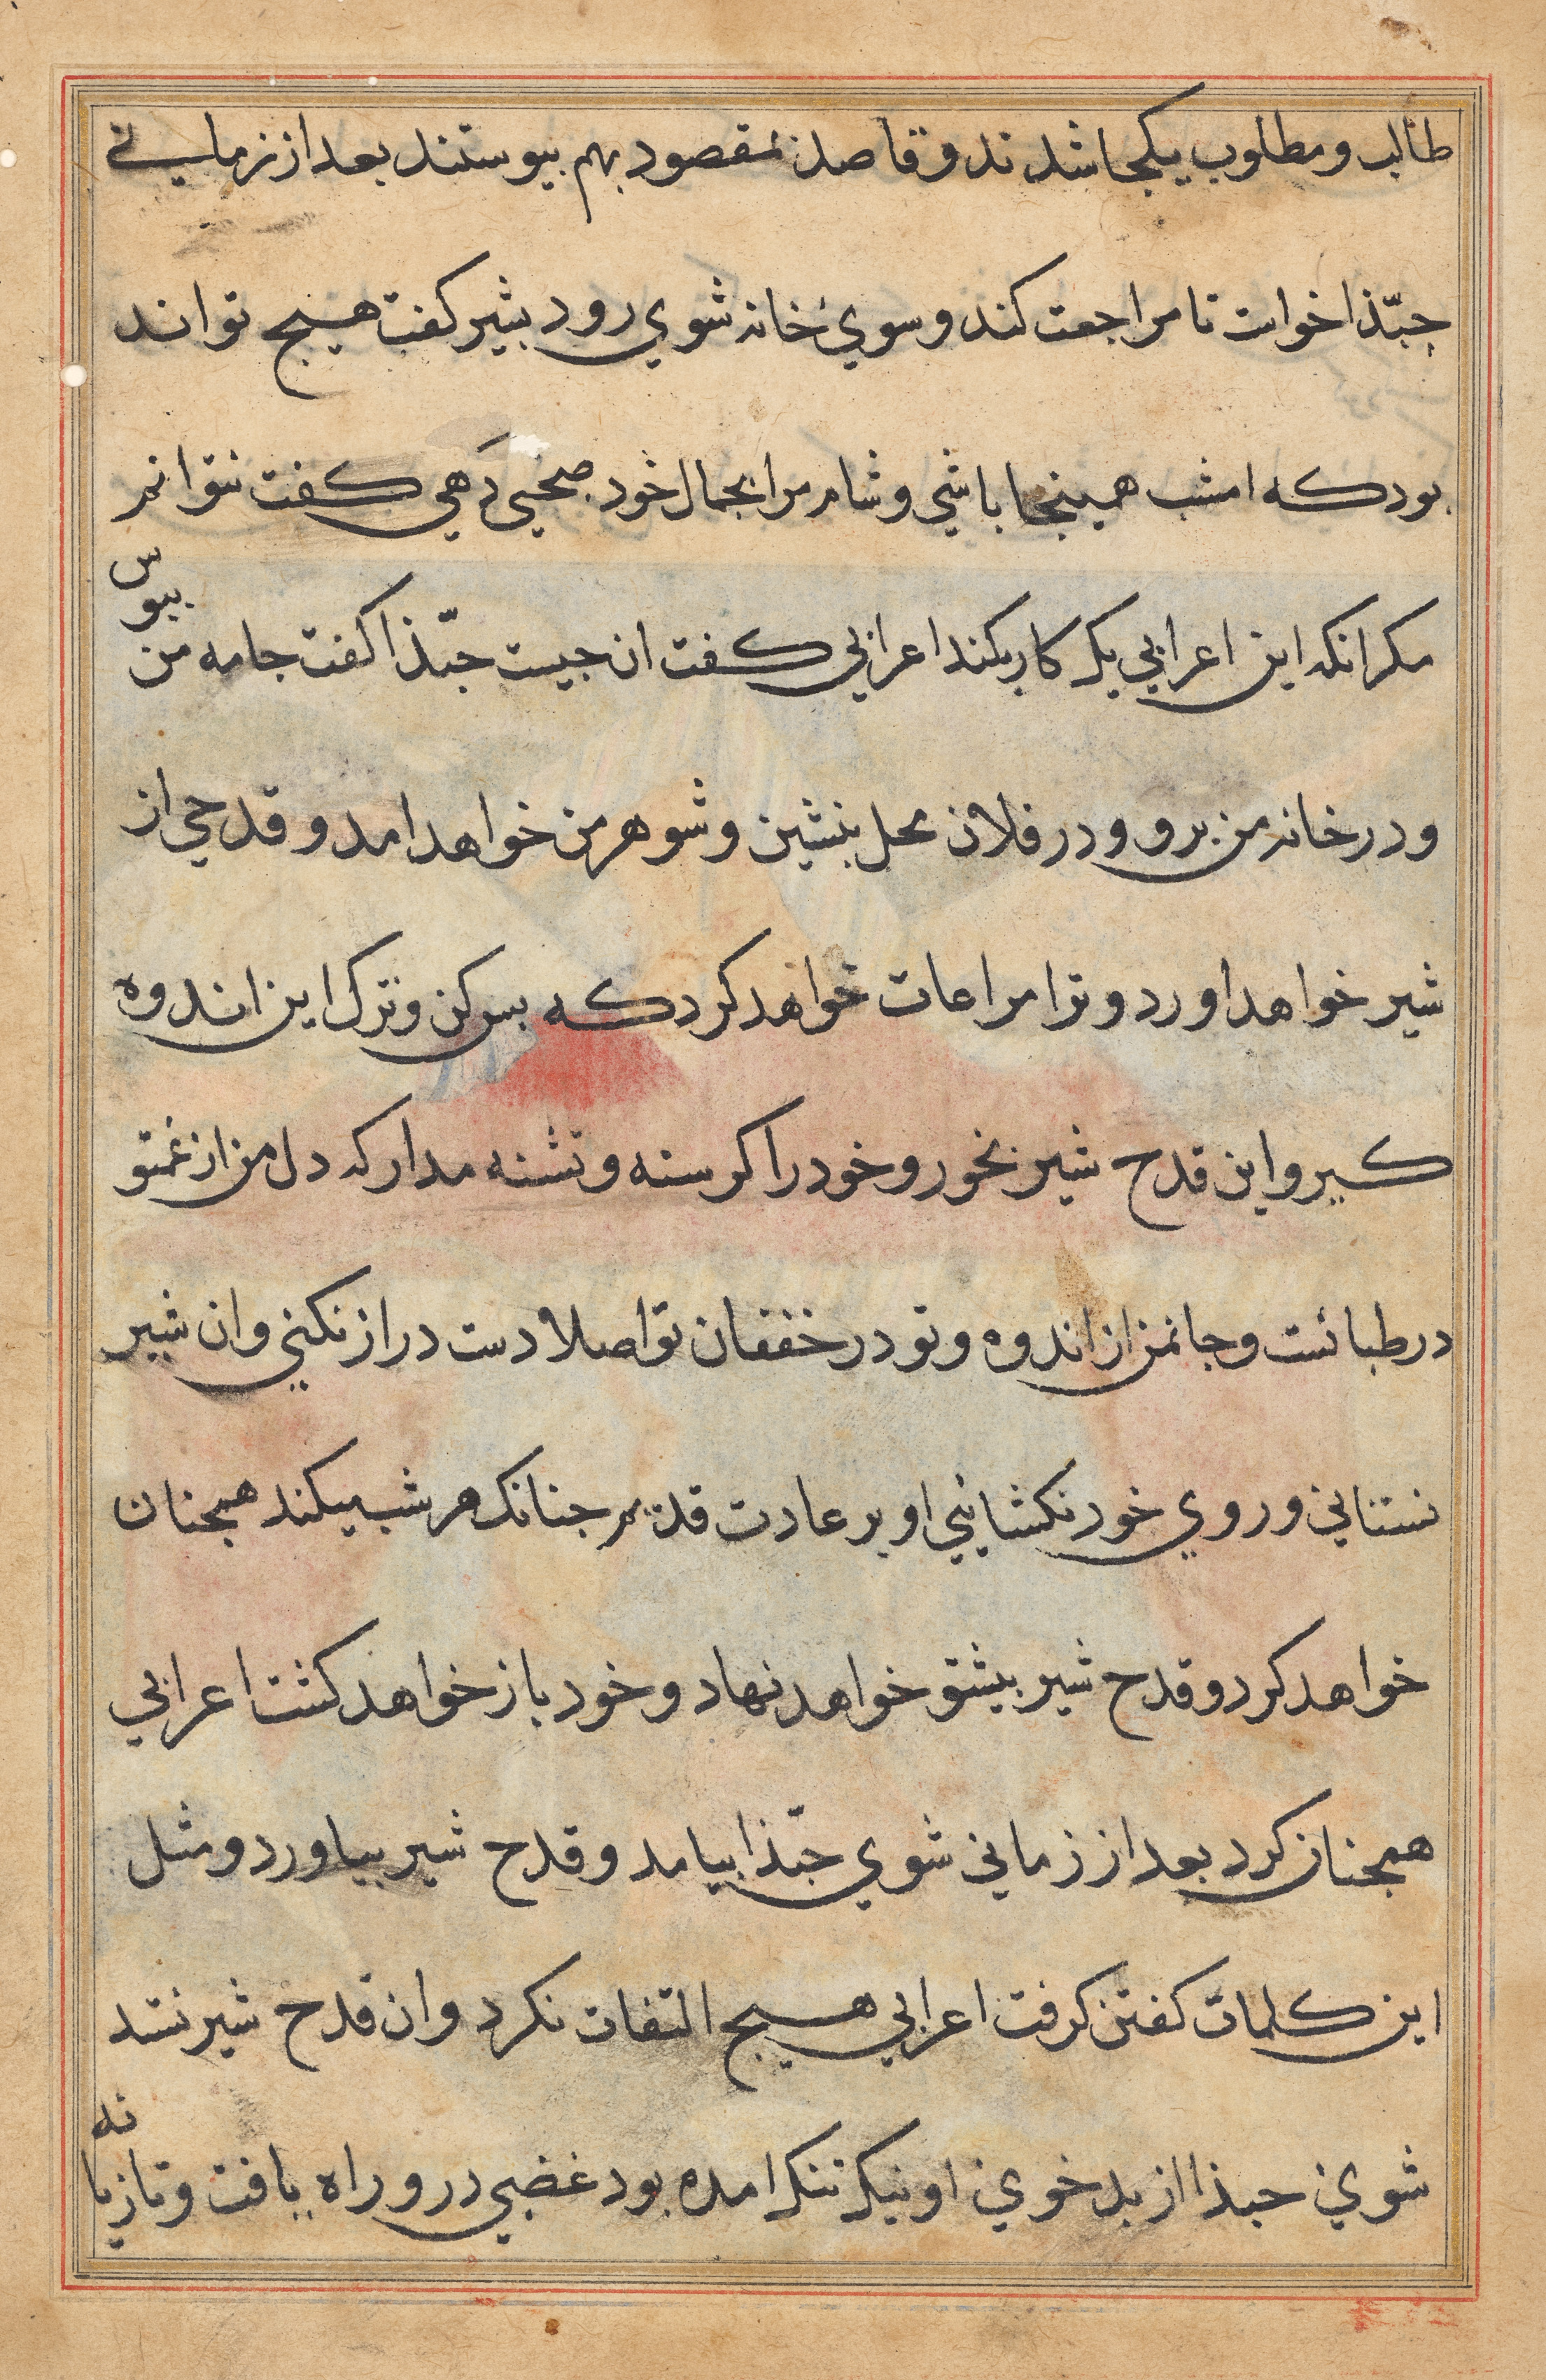 طالب و مطلوب یکجا شدند و قاصد بمقصود بهم بیوستند بعد از زمانی
جبّذا خواست تا مراجعت کند و سوی خانه شوی رود بشیر کفت هیج تواند
بود که امشب همینجا باشی و شام مرا بجمال خود صبحی دهی کفت نتوانم
مکر انکه این اعرابی یک کار بکند اعرابی کفت ان جیست جبّذا کفت جامه من ببوس
و در خانه من برو و در فلان محل بنشین و شوهر من خواهد امد و قدحی از
شیر خواهد اورد و ترا مراعات خواهد کرد که بس کن و ترک این اندوه
کیر و این قدح شیر بخور و خود را کرسنه و تشنه مدار که دل من از غم تو
در طبانست و جانمن از اندوه و تو در خفقان تو اصلا دست دراز نکنی و ان شیر
نستانی و روی خود نکشایی او بر عادت قدیم جنانک هر شب میکند همجنان
خواهد کرد و قدح شیر بیشتو خواهد نهاد و خود باز خواهد کشت اعرابی
همجنان کرد بعد از زمانی شوی جبّذا بیامد و قدح شیر بیاورد و مثل
این کلمات کفتن کرفت اعرابی هیج التفات نکرد و ان قدح شیر نستد
شوی حبذا از بد خوی او نیک تنک امده بود غضبی درو راه یافت و تازیانه